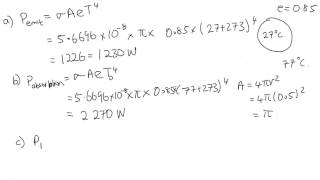 a) P emit = σAeT⁴
e = 0.85
= 5.6696 ×10⁻⁸ × π × 0.85 × (27+273)⁴
27°C
= 1226 = 1230 W
77°C.
b) P absorbtion = σAeT⁴
= 5.6696×10⁻⁸ ×π× 0.85×(77+273)⁴
A = 4πr²
= 4π(0.5)²
= 2 270 W
= π
c) P